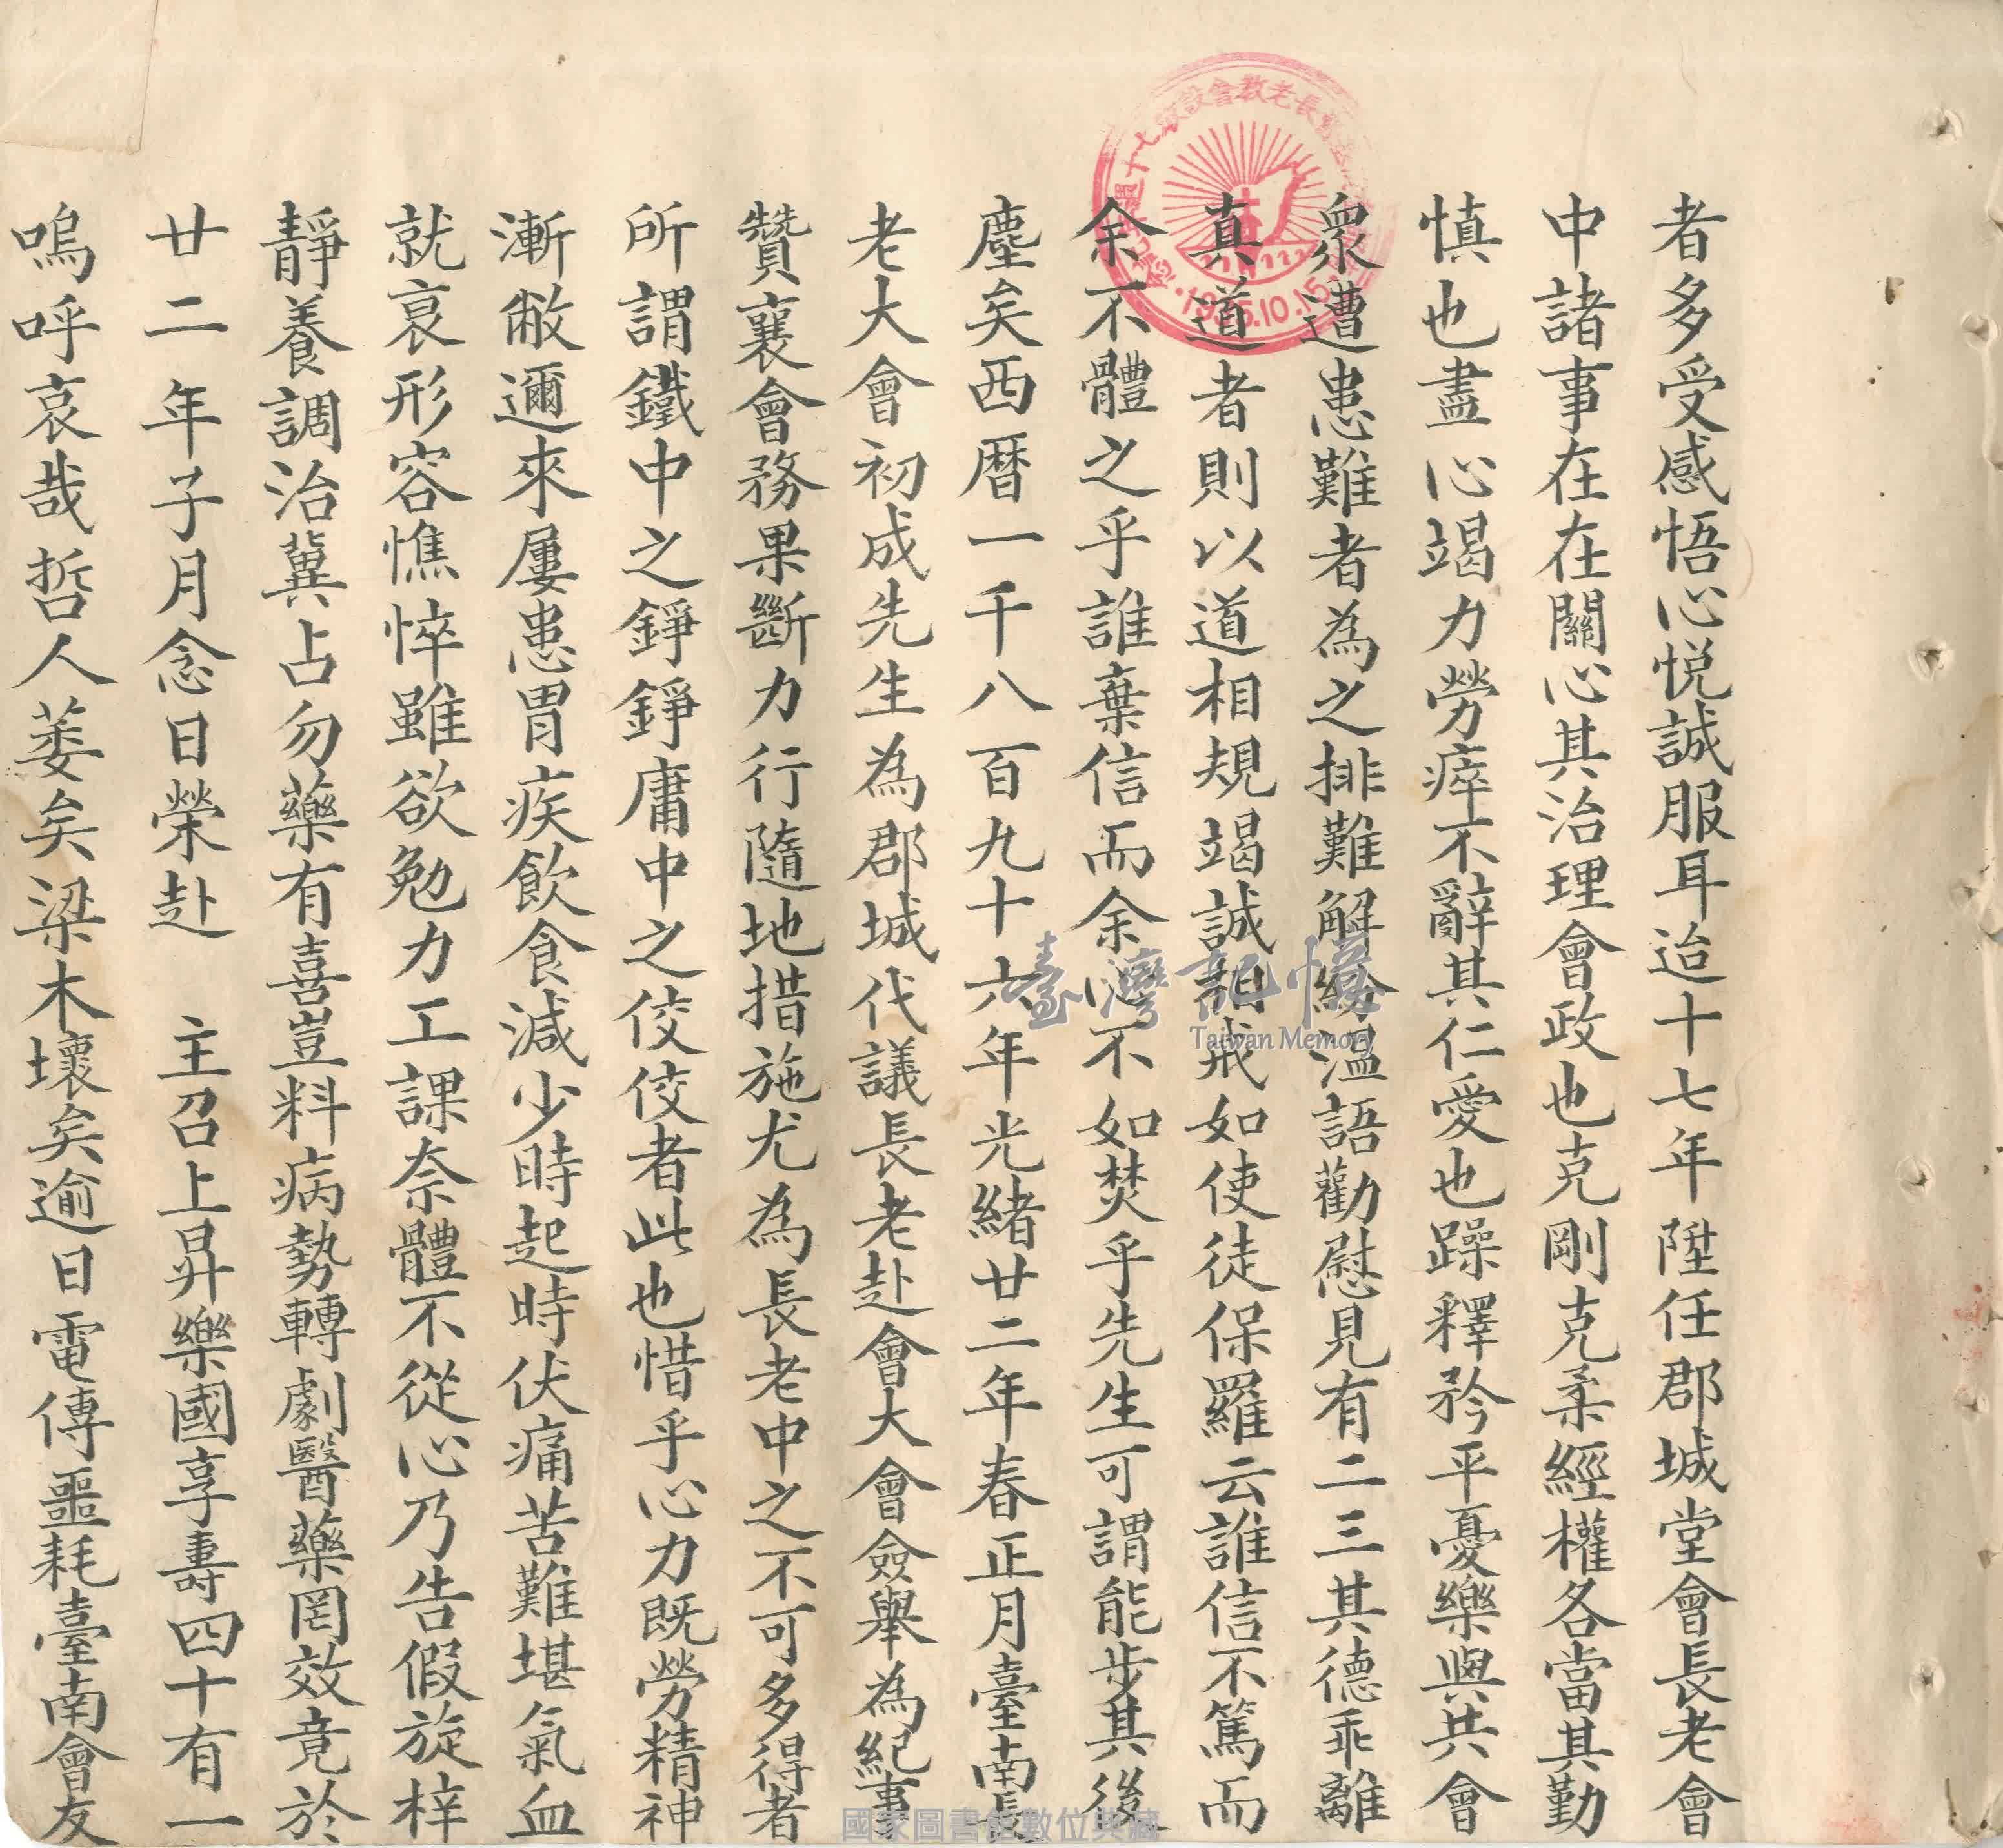 者多受感悟心悦誠服耳迨十七年陞任郡城堂會長老會
中諸事在在關心其治理會政也克剛克柔經權各當其勤
慎也盡心竭力勞瘁不辭其仁愛也躁釋矜平憂樂與共會
衆遭患難者為之排難解紛溫語勸慰見有二三其德乖離
真道者則以道相規竭誠相戒如使徒保羅云誰信不篤而
余不體之乎誰棄信而余心不如焚乎先生可謂能步其後
塵矣西曆一千八百九十六年光緒廿二年春正月臺南長
老大會初成先生為郡城代議長老赴會大會僉舉為紀事
贊襄會務果斷力行隨地措施尤為長老中之不可多得者
所謂鐵中之錚錚庸中之佼佼者此也惜乎心力既勞精神
漸敝邇來屢患胃疾飲食減少時起時伏痛苦難堪氣血
就衰形容憔悴雖欲勉力工課奈體不從心乃告假旋梓
靜養調治冀占勿藥有喜豈料病勢轉劇醫藥罔效竟於
廿二年子月念日榮赴 主召上昇樂國享壽四十有一
嗚呼哀哉哲人萎矣梁木壞矣逾日電傳噩耗臺南會友
1935.10.15
臺灣記憶
Taiwan Memory
國家圖書館數位典藏